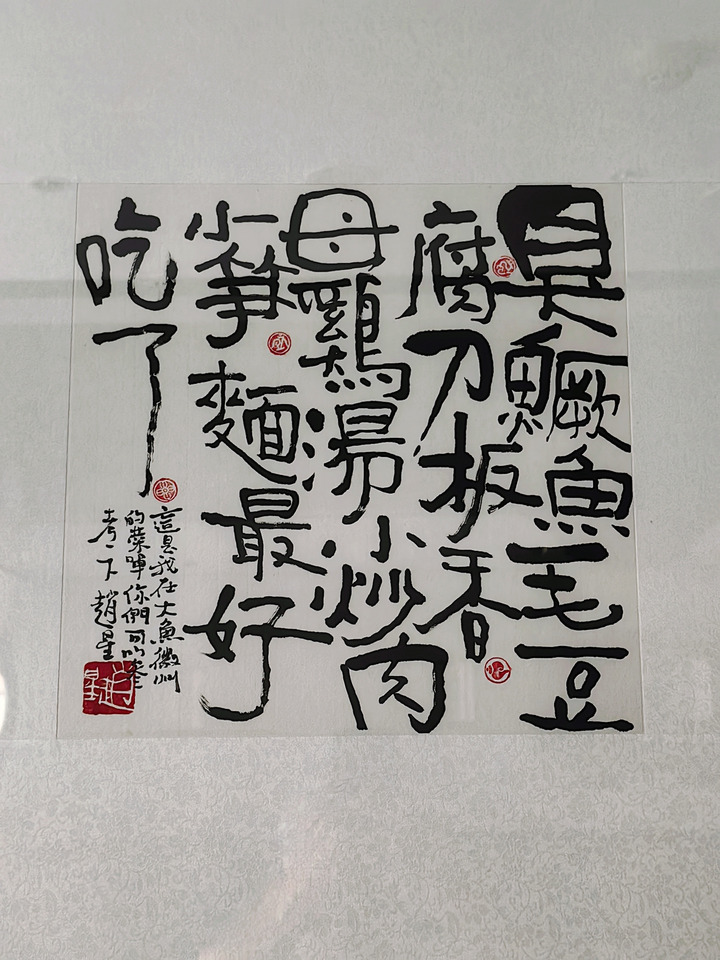 臭鱖魚毛豆
腐刀板香
母鷄湯小炒肉
小筝麵最好
吃了
這是我在大魚徽州
的菜单你們可以参
考一下趙星